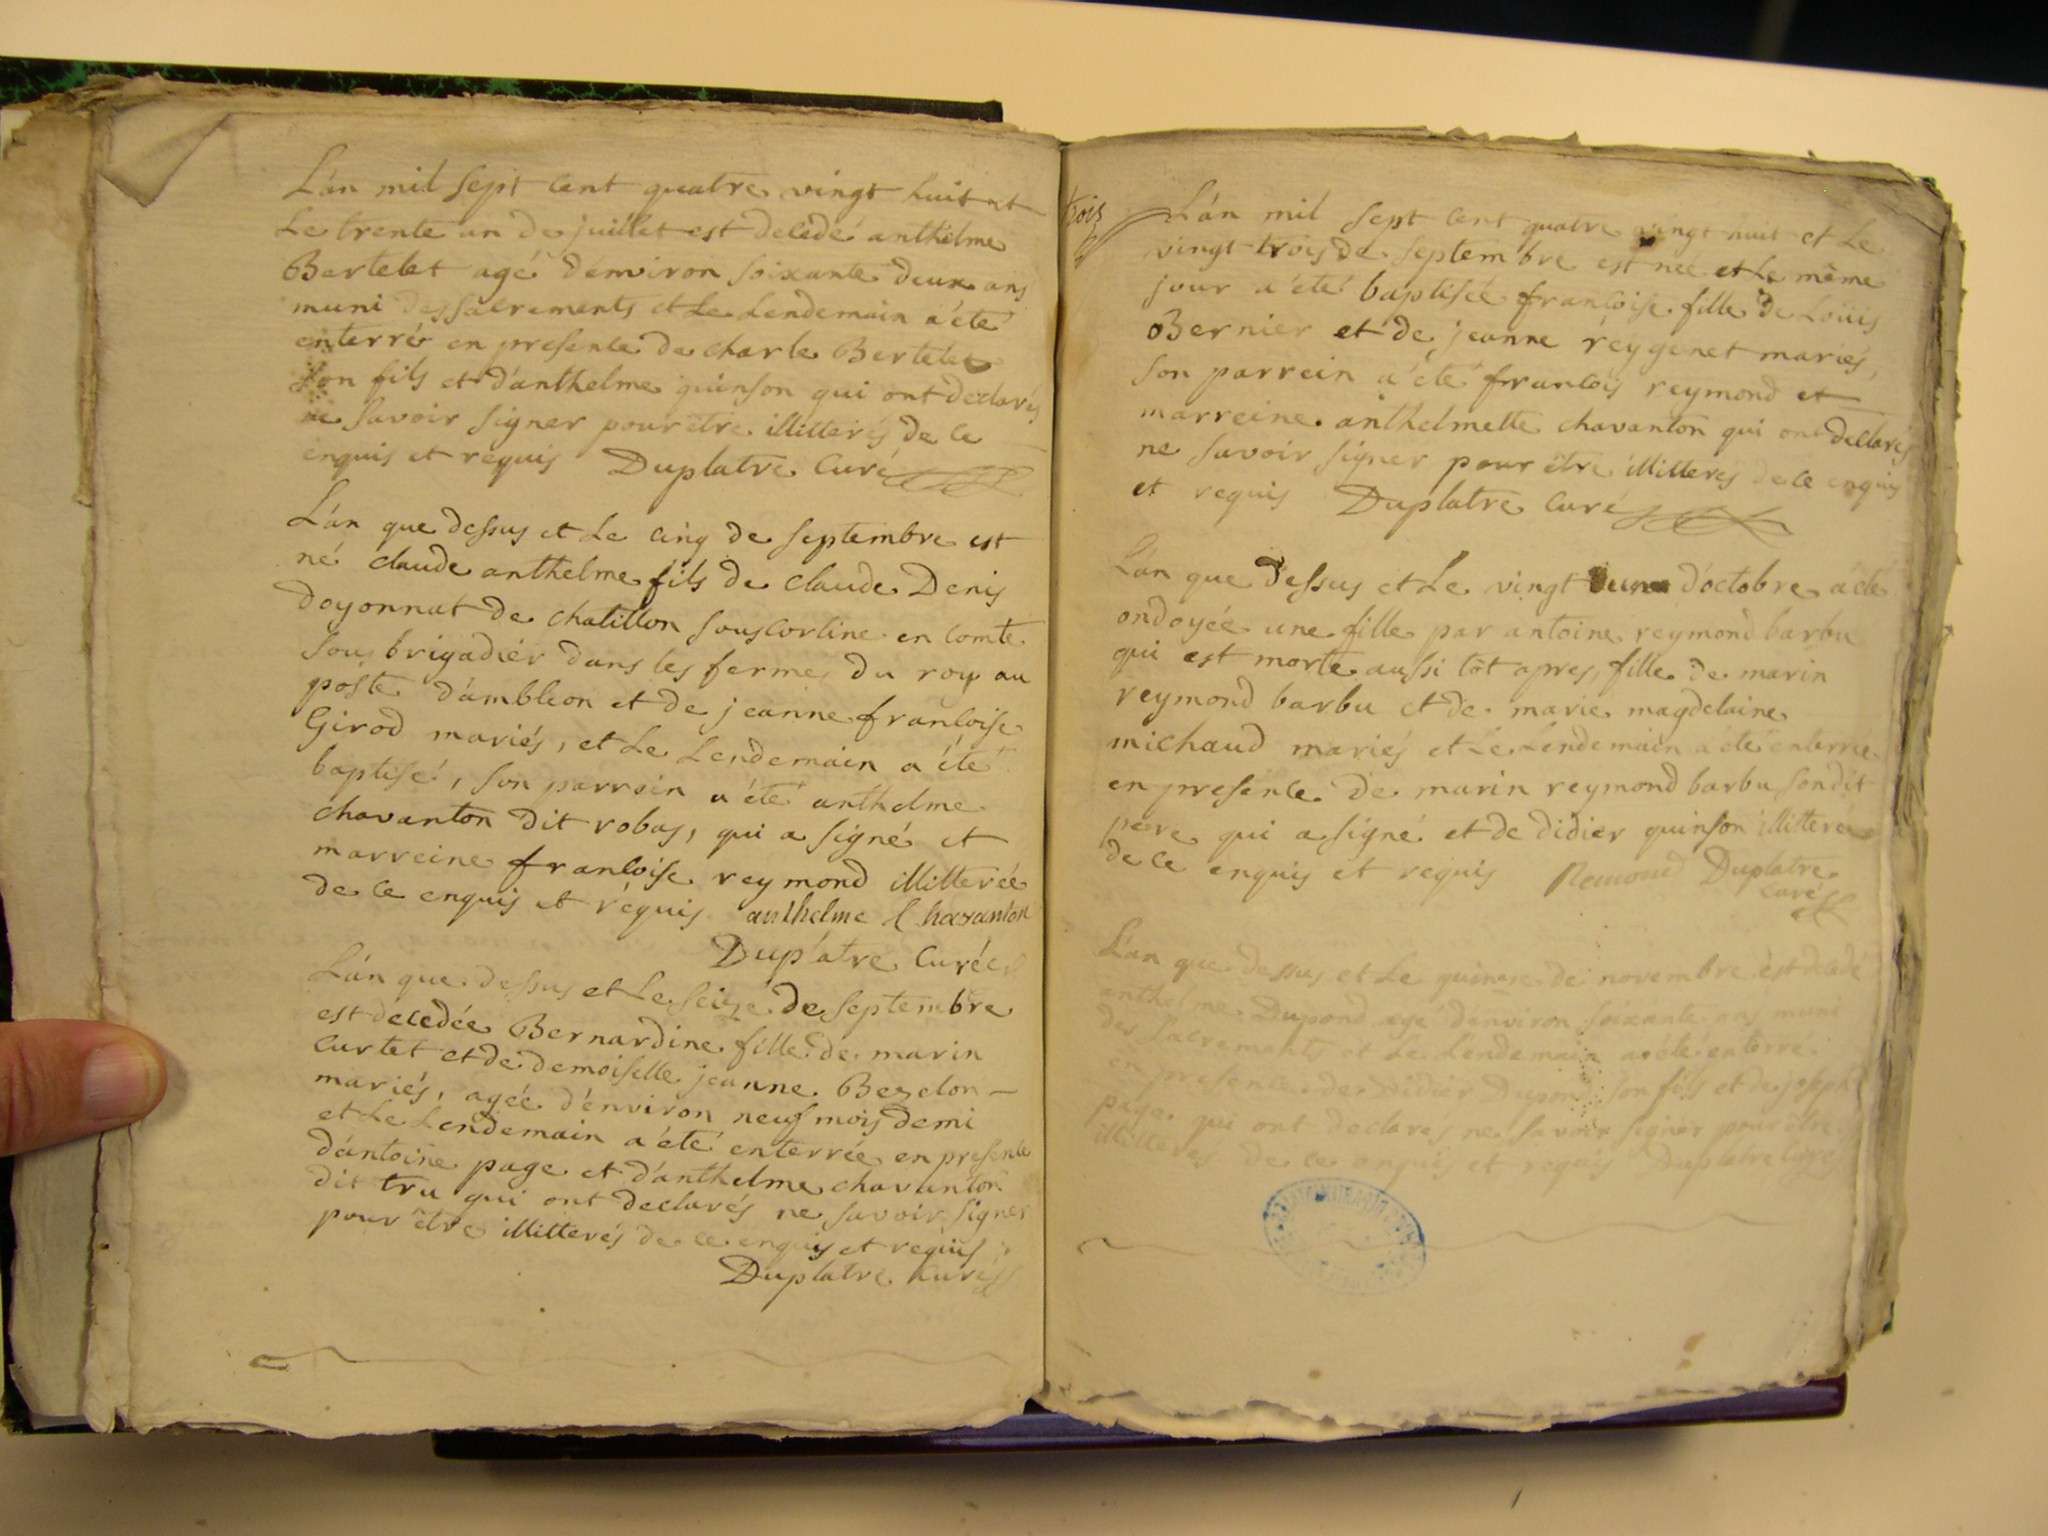 L'an mil sept cent quatre vingt huit et
Le trente un de juillet est decedé anthelme
Bertelet agé d'environ soixante deux ans
muni des sacrements et Le Lendemain a été
enterré en presence de charle Bertelet
son fils et d'anthelme quinson qui ont declarés
ne savoir signer pour être illitterés de ce
enquis et requis Duplatre Curé
L'an que dessus et Le cinq de septembre est
né claude anthelme fils de claude Denis
doyonnat de chatillon sous cortine en comté
sous brigadier dans les fermes du roy au
poste d'ambleon et de jeanne françoise
Girod mariés, et Le Lendemain a été
baptisé, son parrein a été anthelme
chavanton dit robas, qui a signé et
marreine françoise reymond illitterée
de ce enquis et requis anthelme Chavanton
Duplatre Curé
L'an que dessus et Le seize de septembre
est decedée Bernardine fille de marin
Curtet et de demoiselle jeanne Bezelon
mariés, agée d'environ neuf mois demi
et Le Lendemain a été enterrée en presence
d'antoine page et d'anthelme chavanton
dit tru qui ont declarés ne savoir signer
pour être illitterés de ce enquis et requis
Duplatre Curé
trois
L'an mil sept cent quatre vingt huit et Le
vingt trois de septembre est née et Le même
jour a été baptisée françoise fille de Loüis
Bernier et de jeanne reygenet mariés,
son parrein a été françois reymond et
marreine anthelmette chavanton qui ont declarés
ne savoir signer pour être illitteres de ce enquis
et requis Duplatre Curé
L'an que dessus et Le vingt d'octobre a été
ondoyée une fille par antoine reymond barbu
qui est morte aussi tôt apres, fille de marin
reymond barbu et de marie magdelaine
michaud mariés et Le Lendemain a été enterrée
en presence de marin reymond barbu son dit
pere qui a signé et de didier quinson illitteré
de ce enquis et requis Remond Duplatre
Curé
L'an que dessus et Le quinze de novembre est decedé
anthelme Dupond agé d'environ soixante ans muni
des sacrements et Le Lendemain a été enterré
en presence de Didier Dupond son fils et de joseph
page qui ont declares ne savoir signer pour être
illitteres de ce enquis et requis Duplatre Curé